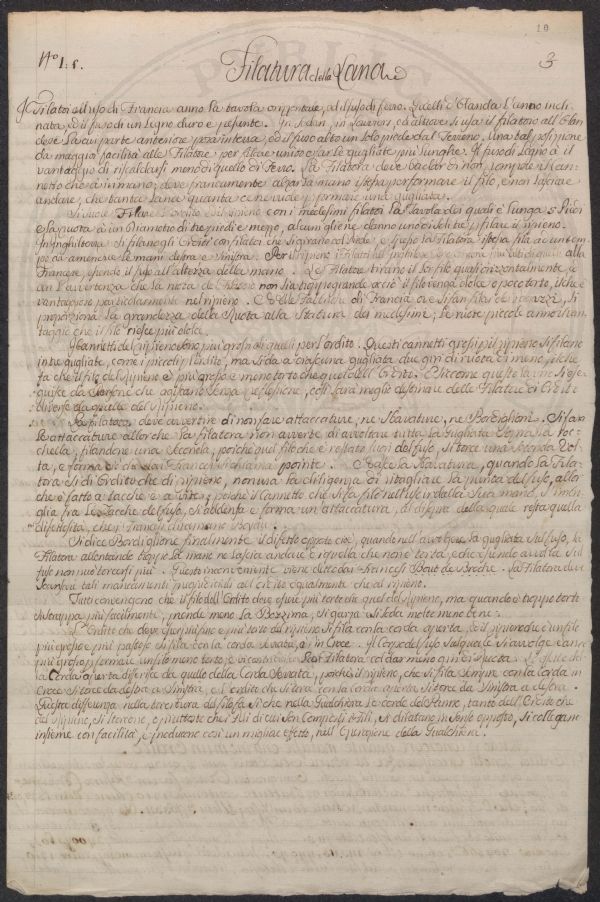 10
N.o 1. 5.
Filatura della Lana
3
Filatoi all'uso di Francia anno la tavola orizontale, ed il fuso di ferro. Quelli d'Olanda l'anno incli-
nata, ed il fuso di un legno duro e pesante. In Sedan, in Louviers, ed altrove si usa il filatoio all'Olan
dese la cui parte anteriore posa in terra, ed il fuso alto un solo piede dal Terreno. Una tal posizione
da maggior facilità alle Filatore per filare unito e far le gugliate più lunghe. Il fuso di Legno à il
vantaggio di riscaldarsi meno di quello di Ferro. La Filatora deve badar di non rompere il can-
netto che à in mano; deve francamente alzar la mano istessa per formare il filo, e non lasciare
andare, che tanta Lana quanta ce ne vuole per formare una gugliata.
Si suole Filare l'ordito ed il ripieno con i medesimi filatoi la Tavola dei quali è lunga 5 Piedi
e la ruota à un diametro di tre piedi e mezzo, alcuni gliene danno uno di
In Inghilterra si filano gli Orditi con filatoi che si girano col piede, e spesso la Filatora istessa fila ad un tem-
po da amendue le mani destra e sinistra. Per il ripieno i Filatoi
Francese, essendo il fuso all'altezza della mano. Le Filatore tirano il lor filo quasi orizontalmente
con l'avvertenza che la noce del fuso non sia troppo grande acciò il filo venga dolce o poco torto, il che è
vantaggioso particolarmente nel ripieno. Nelle Fabbriche di Francia ove si fan filar de ragazzi, si
proporziona la grandezza della Ruota alla statura dei medesimi; Le ruote piccole anno il van-
taggio che il filo riesce più dolce.
I Cannetti del ripieno sono più grossi di quelli per l'ordito. Questi cannetti grossi per il ripieno si filano
in tre gugliate, come i piccoli per l'ordito, ma si dà a ciascuna gugliata due giri di ruota di meno, il che
fa che il filo del ripieno è più grosso e meno torto che quel dell'Ordito. E siccome queste
guisce da persone che agiscono senza riflessione, così sarà meglio destinare delle Filatore di Ordito
diverse da quelle del ripieno.
La filatora deve avvertire di non fare attaccature, ne Sbavature, ne Bordiglioni. Si fan
le attaccature allorche la filatora non avverte di avvoltare tutta la Gugliata
chella, filandone una seconda, poichè quel filo che è restato fuori del fuso, si torce una seconda vol-
ta, e forma ciò che dai Francesi si chiama pointe. Nasce la Sbavatura, quando la Fila-
tora sì di Ordito che di ripieno, non usa la diligenza di ritagliare la punta del fuso, allor
che è fatto a tacche è a Vite; poichè il Cannetto che si fa filo nell'uscir dalla sua mano, s'imbri-
glia fra le Tacche del fuso, si addensa e forma un'attaccatura, al disopra della quale resta quella
difettosità, che i Francesi chiamano Bavure.
Si dice Bordiglione finalmente il difetto opposto cioè, quando nell'avvolgere la gugliata sul fuso, la
Filatora allentando troppo la mano ne lascia andare a rivolta che non è torta, e che essendo avvolta sul
fuso non può torcersi più. Quest'inconveniente viene detto dai Francesi Bout de Broche. La Filatora deve
scansare tali mancamenti pregiudiziali all'ordito egualmente che al ripieno.
Tutti convengono che il filo dell'Ordito deve essere più torto che quel del ripieno, ma quando è troppo torto
si strappa più facilmente, prende meno la Bozzima, si garza si soda molto meno bene.
L'Ordito che deve esser più fine e più torto del ripieno si fila con la corda aperta, e il ripieno che è un filo
più grosso e più pastoso si fila con la corda serrata, o in Croce. Il Corpo del fuso sul quale si avvolge l'anco
più grosso per formare un filo meno torto, e in contrario la Filatora col dar meno giri di ruota. L'effetto del-
la Corda aperta differisce da quello della Corda serrata, poichè il ripieno, che si fila sempre con la Corda in
Croce si torce da destra a sinistra, e l'ordito che si fila con la corda aperta si torce da sinistra a destra.
Questa differenza nella torcitura del filo fa sì che nella Gualchiera le corde del Panno, tanto dell'Ordito che
del ripieno, si torcono, e piuttosto che i fili di cui son composti
insieme con facilità, e producono così un miglior effetto, nell'operazione della Gualchiera.